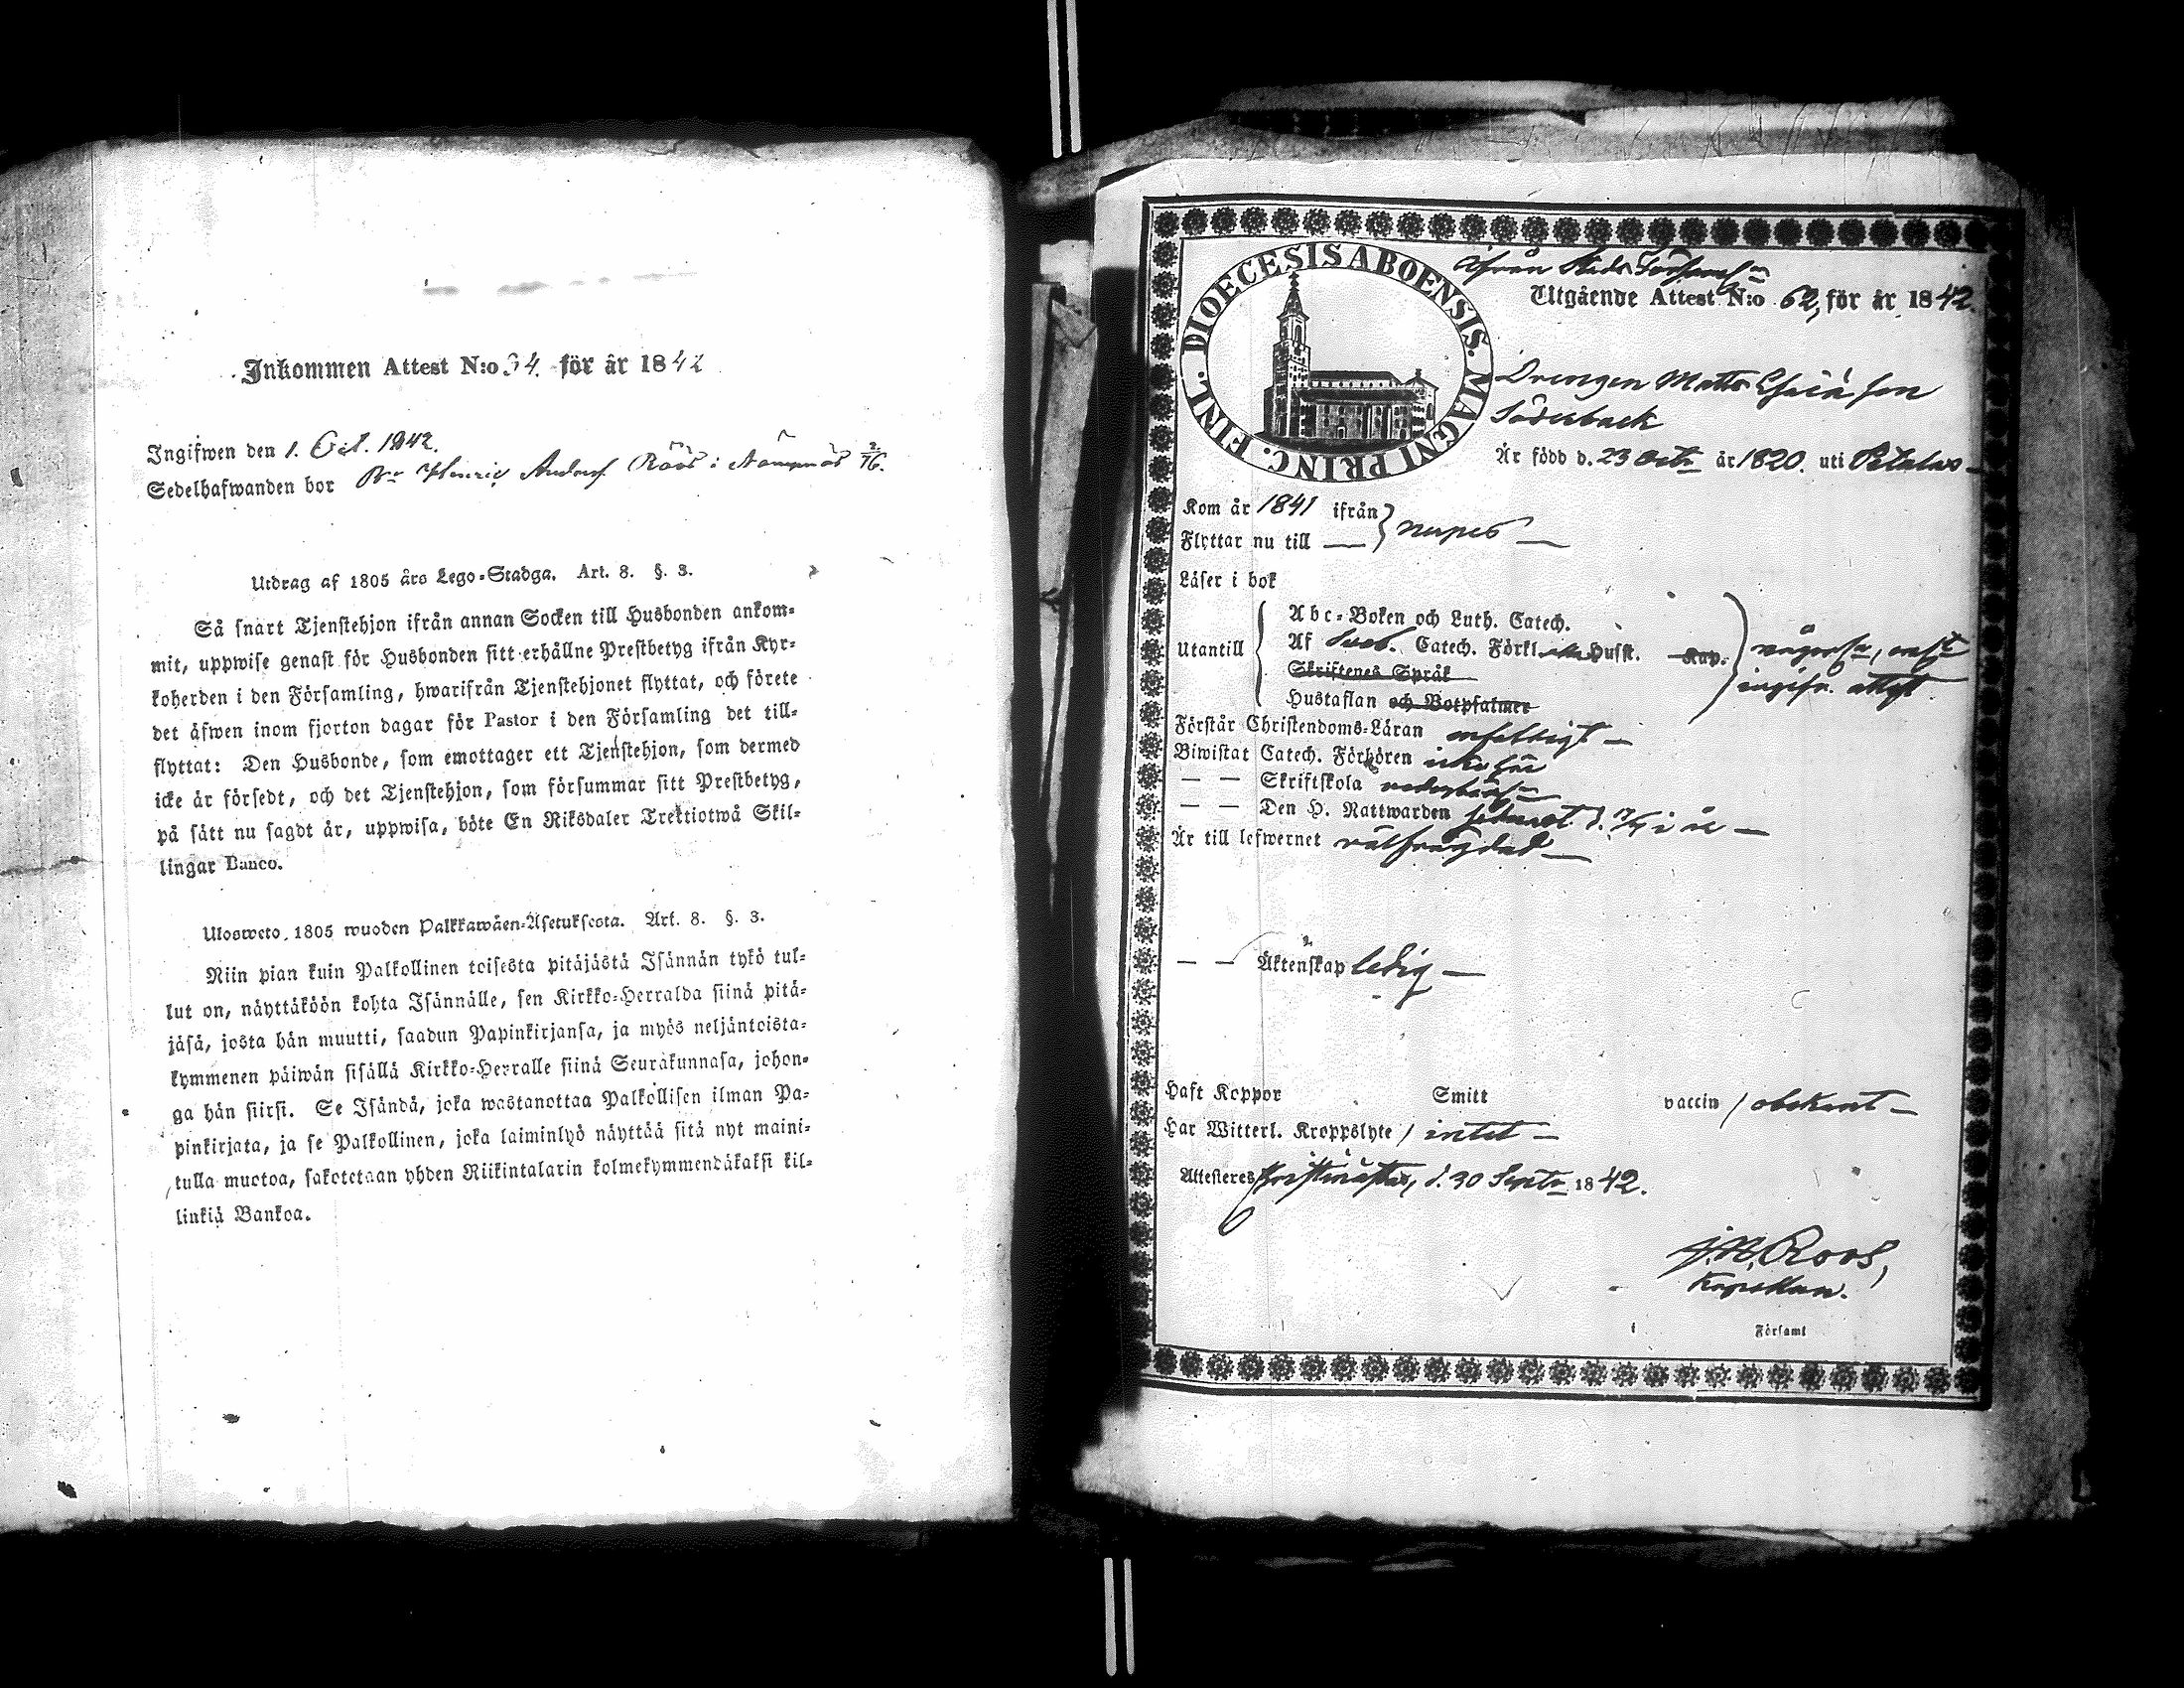 Inkommen Attest N:o 34. för år 1842
Ingifwen den 1. Oct. 1842.
Sedelhafwanden bor Br Henric Andersf. Röös i Nämpnäs 2/76.
Utdrag af 1805 års Lego-Stadga. Art. 8. §. 3.
Så snart Tjenstehjon ifrån annan Socken till Husbonden ankom-
mit, uppwise genast för Husbonden sitt erhållne Prestbetyg ifrån Kyr-
koherden i den Församling, hwarifrån Tjenstehjonet flyttat, och förete
det äfwen inom fjorton dagar för Pastor i den Församling det till-
flyttat: Den Husbonde, som emottager ett Tjenstehjon, som dermed
icke är försedt, och det Tjenstehjon, som försummar sitt Prestbetyg,
på sätt nu sagdt är, uppwisa, böte En Riksdaler Trettiotwå Skil-
lingar Banco.
Ulosweto 1805 wuoden Palkkawäen-Asetuksesta. Art. 8. §. 3.
Niin pian kuin Palkollinen toisesta pitäjästä Isännän tykö tul-
lut on, näyttäköön kohta Isännälle, sen Kirkko-Herralda siinä pitä-
jäsä, josta hän muutti, saadun Papinkirjansa, ja myös neljäntoista-
kymmenen päiwän sisällä Kirkko-Herralle siinä Seurakunnasa, johon-
ga hän siirsi. Se Isändä, joka wastanottaa Palkollisen ilman Pa-
pinkirjata, ja se Palkollinen, joka laiminlyö näyttää sitä nyt maini-
tulla muotoa, sakotetaan yhden Riikintalarin kolmekymmendäkaksi kil-
linkiä Bankoa.
DIOECESIS ABOENSIS. MAGNI PRINC. FINL.
Ifrån Stads Församln
Utgående Attest N:o 62, för år 1842.
Drengen Matts Esaiæson
Söderback
Är född d. 23 Octr år 1820. uti Petalax
Kom år 1841 ifrån
Flyttar nu till — } Nerpes —
Läser i bok
Abc-Boken och Luth. Catech.
Utantill Af Sveb. Catech. Förkl. Husst. Kap. någorl.
Skriftenes Språk ingifn. attest
Hustaflan och Botpsalmer
Förstår Christendoms-Läran enfaldigt —
Biwistat Catech. Förhören icke här
— — Skriftskola vederbörln
— — Den H. Nattwarden sednast d. i år —
Är till lefwernet välfrägdad —
— — Äktenskap ledig —
Haft Koppor Smitt vaccin / obekant —
Har Witterl. Kroppslyte / intet —
Attesteres Christinæstad, d. 30 Septr 1842.
J. N. Roos,
Kapellan.
Församl